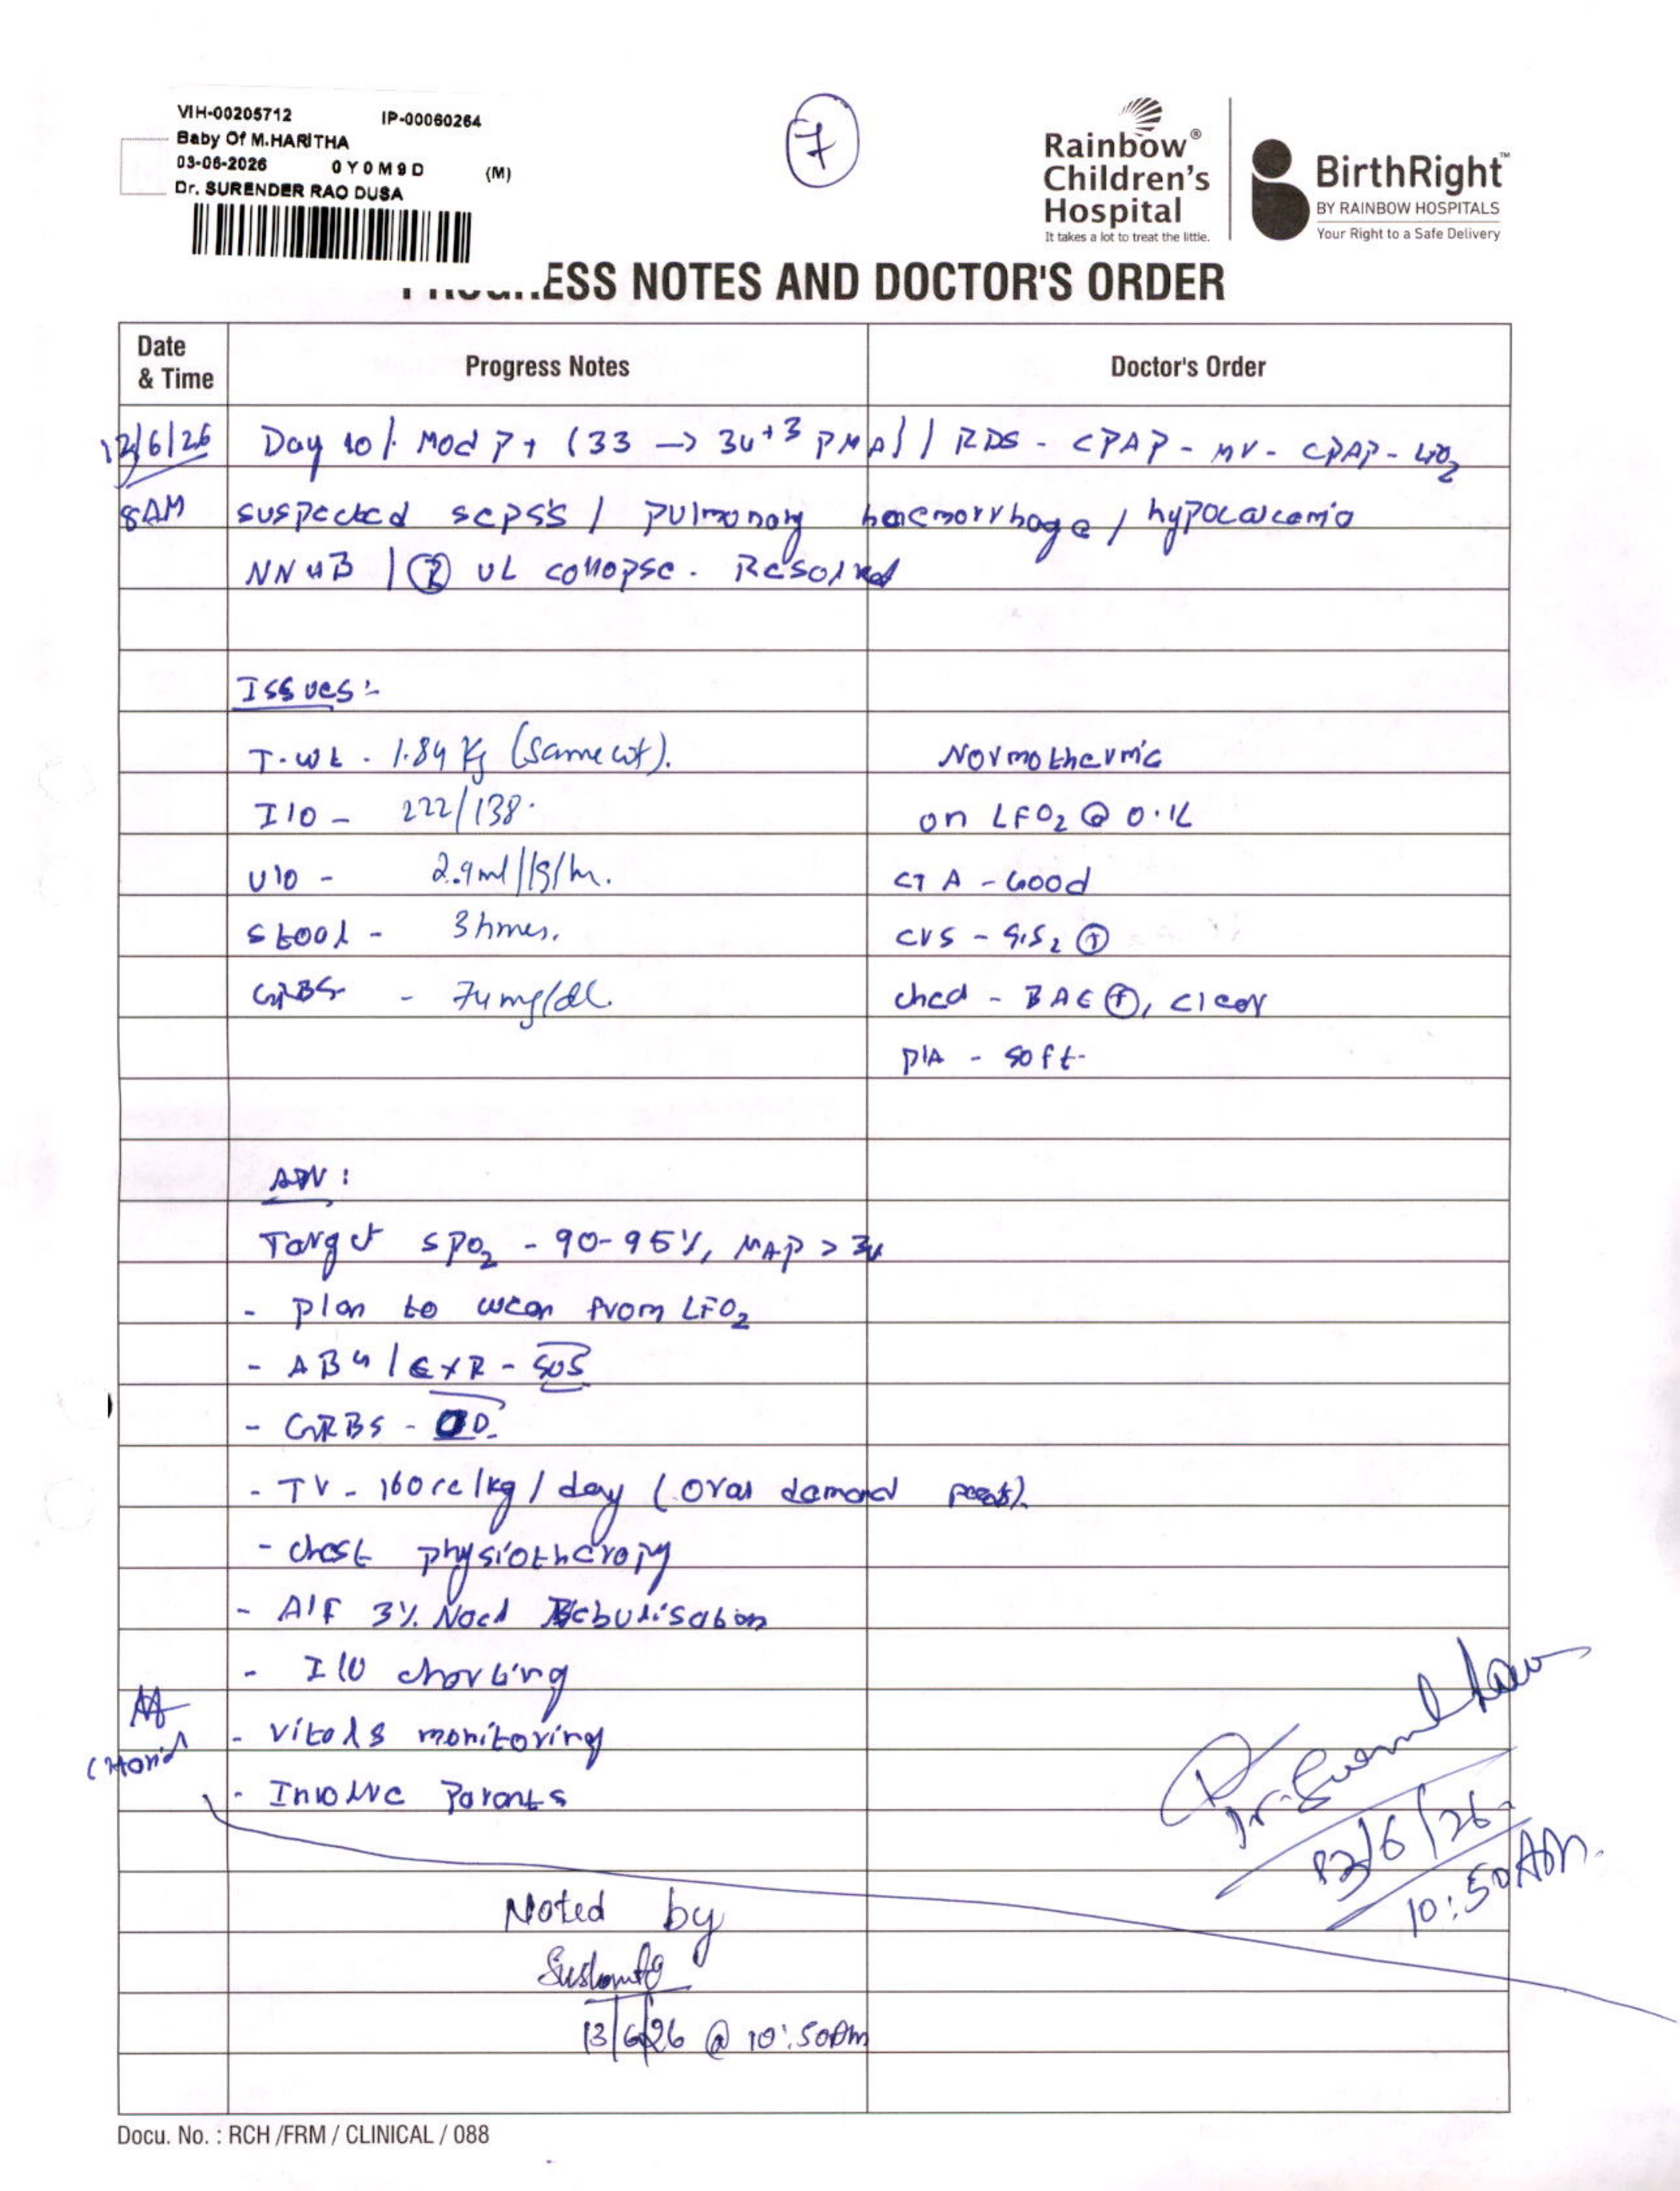 VIH-00205712 IP-00060264
Baby Of M.HARITHA
03-06-2026 0Y0M9D (M)
Dr. SURENDER RAO DUSA
7
Rainbow®
Children's
Hospital
It takes a lot to treat the little.
BirthRight™
BY RAINBOW HOSPITALS
Your Right to a Safe Delivery
ESS NOTES AND DOCTOR'S ORDER
Date & Time Progress Notes Doctor's Order
/6/26 Day 10 / Mod PT (33 → 34+3 PMA) / RDS - CPAP - MV - CPAP -
8AM suspected sepsis / pulmonary haemorrhage / hypocalcemia
NNHB / Ⓡ UL collapse. Resolved
Issues:-
T.wt - 1.84 Kg (Same wt). Normothermic
I/O - 222/138. on LFO2 @ 0.1L
U/O - 2.9ml/kg/hr. CTA - Good
Stool - 3 times. CVS - S1S2 ⊕
GRBS - 74mg/dl. chest - BAE ⊕, clear
P/A - soft
ADV:
Target SPO2 - 90-95%, MAP > 34
- Plan to wean from LFO2
- ABG / CXR - SOS
- GRBS - OD
- TV - 160cc/kg/day (Oral demand feeds).
- Chest physiotherapy
- A/F 3% Nacl Nebulisation
- I/O charting
- Vitals monitoring
- Involve Parents
Dr.
/6/26
10:50AM.
Noted by
13/6/26 @ 10:50Am
Docu. No. : RCH /FRM / CLINICAL / 088